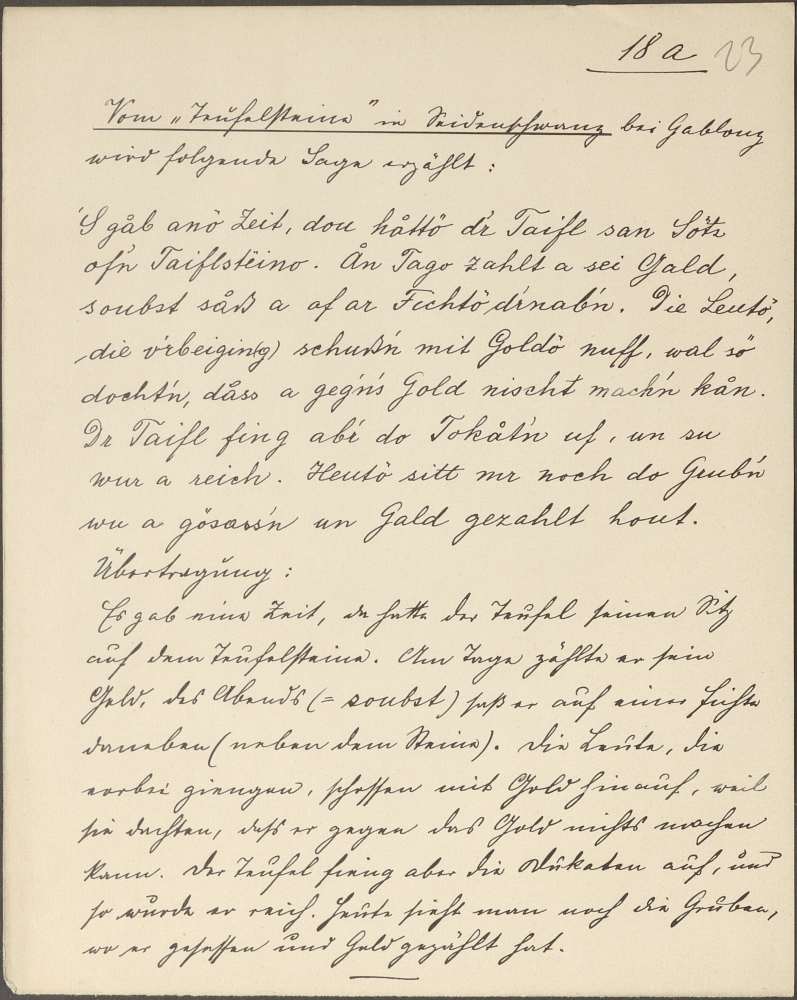 18 a 23
Vom „Teufelsteine" in Seidenschwanz bei Gablonz
wird folgende Sage erzählt:
'S gåb anö Zeit, dou håttö d'r Taifl san Sötz
ofn Taiflstëino. Ån Tago zahlt a sei Gald,
soubst såß a of ar Fichtö d'rnab'n. Die Leutö,
die v'rbeigin(g) schuß'n mit Goldö nuff, wal sö
docht'n, dåss a geg'n's Gold nischt mach'n kån.
Dr Taifl fing ab'r do Tokåt'n uf, un su
wur a reich. Heutö sitt mr noch do Grub'n
wu a gösass'n un Gald gezahlt hout.
Übertragung:
Es gab eine Zeit, da hatte der Teufel seinen Sitz
auf dem Teufelsteine. Am Tage zählte er sein
Geld, des Abends (= soubst) saß er auf einer Fichte
daneben (neben dem Steine). Die Leute, die
vorbei giengen, schossen mit Gold hinauf, weil
sie dachten, daß er gegen das Gold nichts machen
kann. Der Teufel fieng aber die Dukaten auf, und
so wurde er reich. Heute sieht man noch die Gruben,
wo er gesessen und Geld gezählt hat.